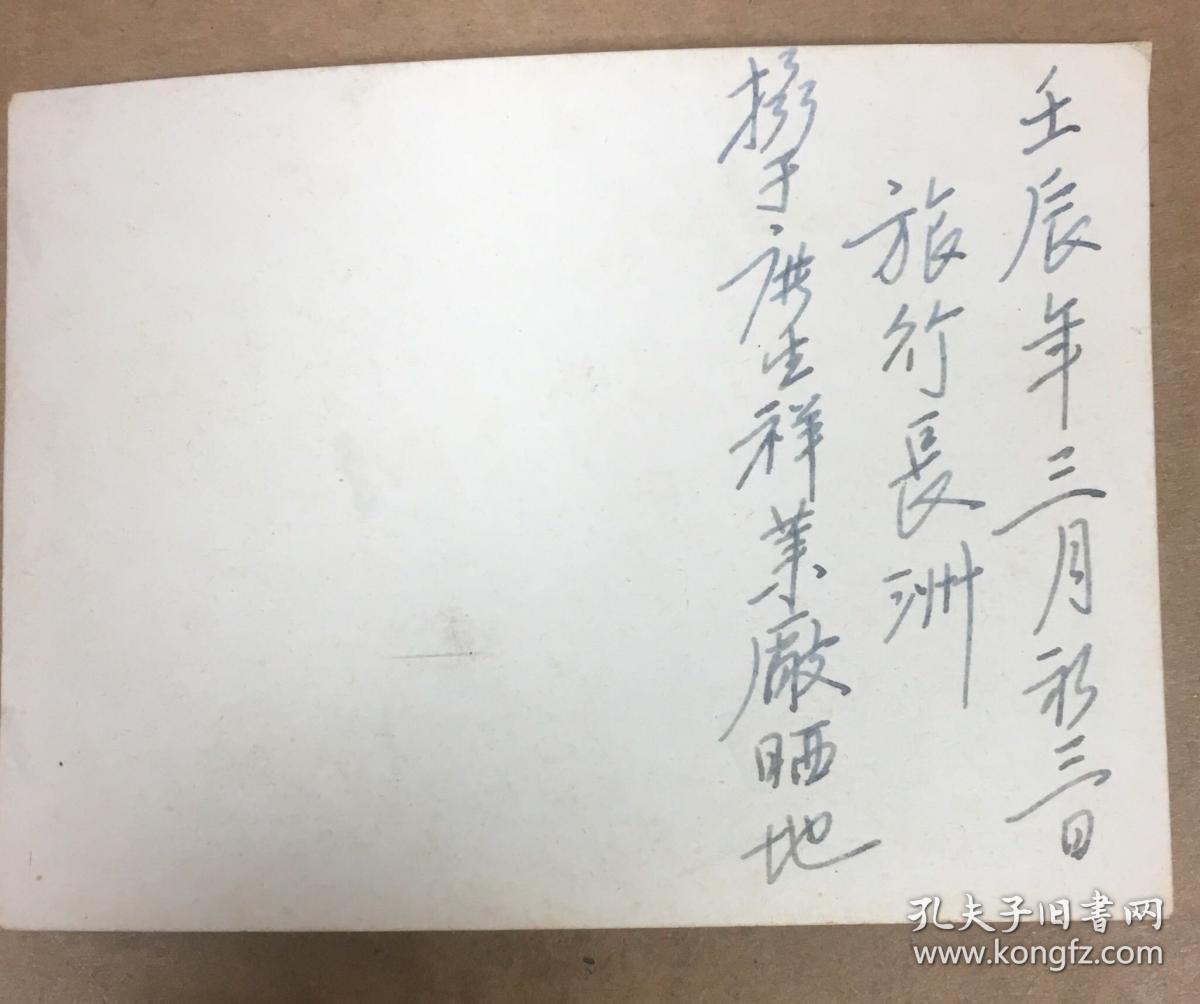 壬辰年三月初三日
旅行長洲
于廣生祥菓廠晒地
孔夫子旧書网
www.kongfz.com